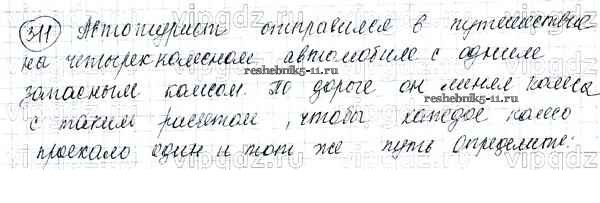 311 Автотурист отправился в путешествие
на четырехколесном автомобиле с одним
запасным колесом. По дороге он менял колеса
с таким расчетом, чтобы каждое колесо
проехало один и тот же путь Определите:
reshebnik5-11.ru
reshebnik5-11.ru
vipgdz.ru
vipgdz.ru
vipgdz.ru
vipgdz.ru